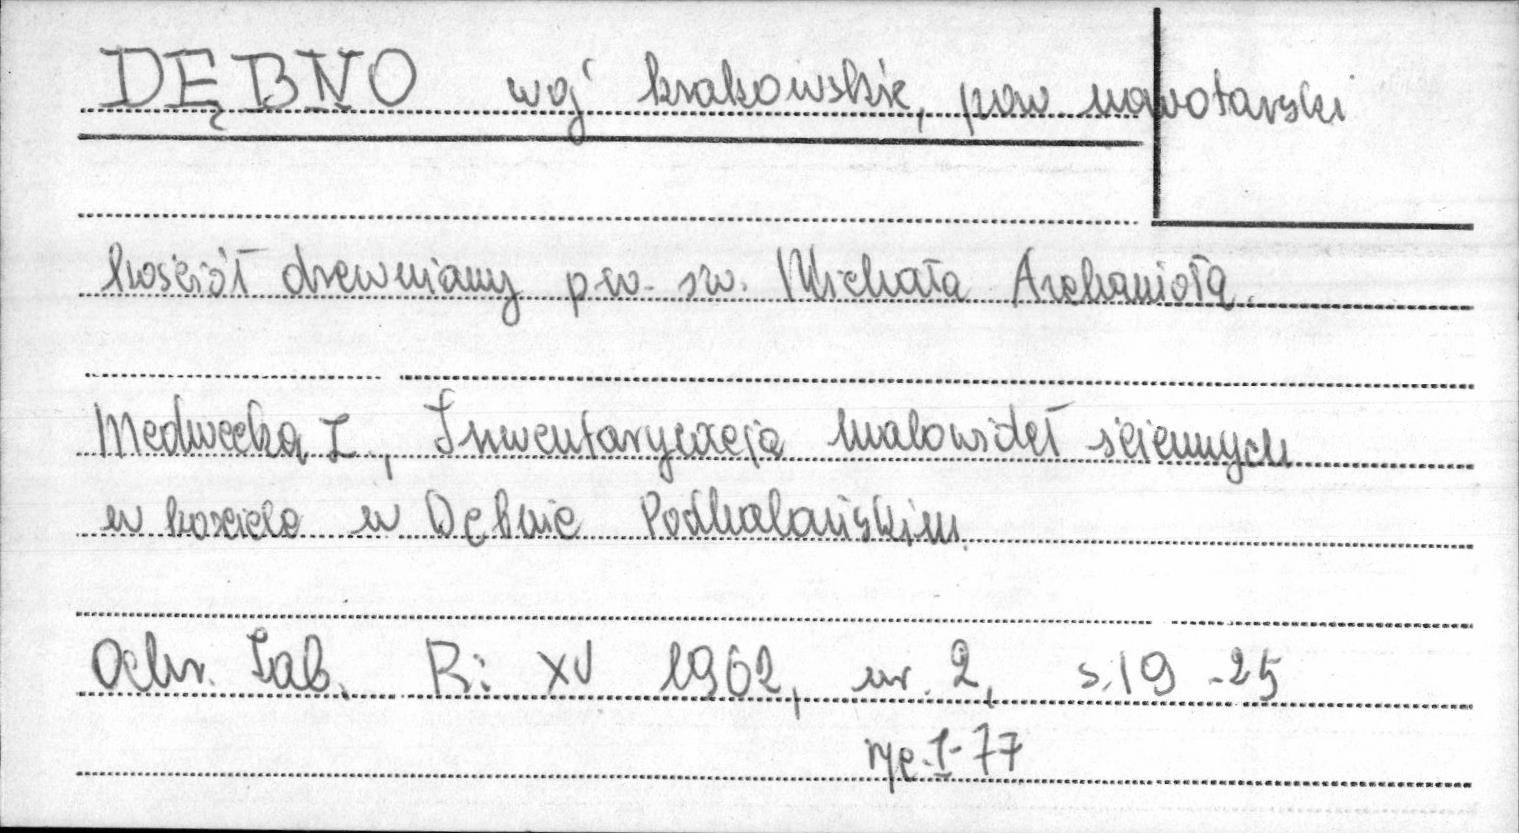 DĘBNO woj krakowskie, pow nowotarski
kościół drewniany p.w. św. Michała Archanioła.
Medwecka Z., Inwentaryzacja malowideł ściennych
w kościele w Dębnie Podhalańskim.
Ochr. Zab. R: XV 1962, nr. 2, s. 19 - 25
ryc. 1-77